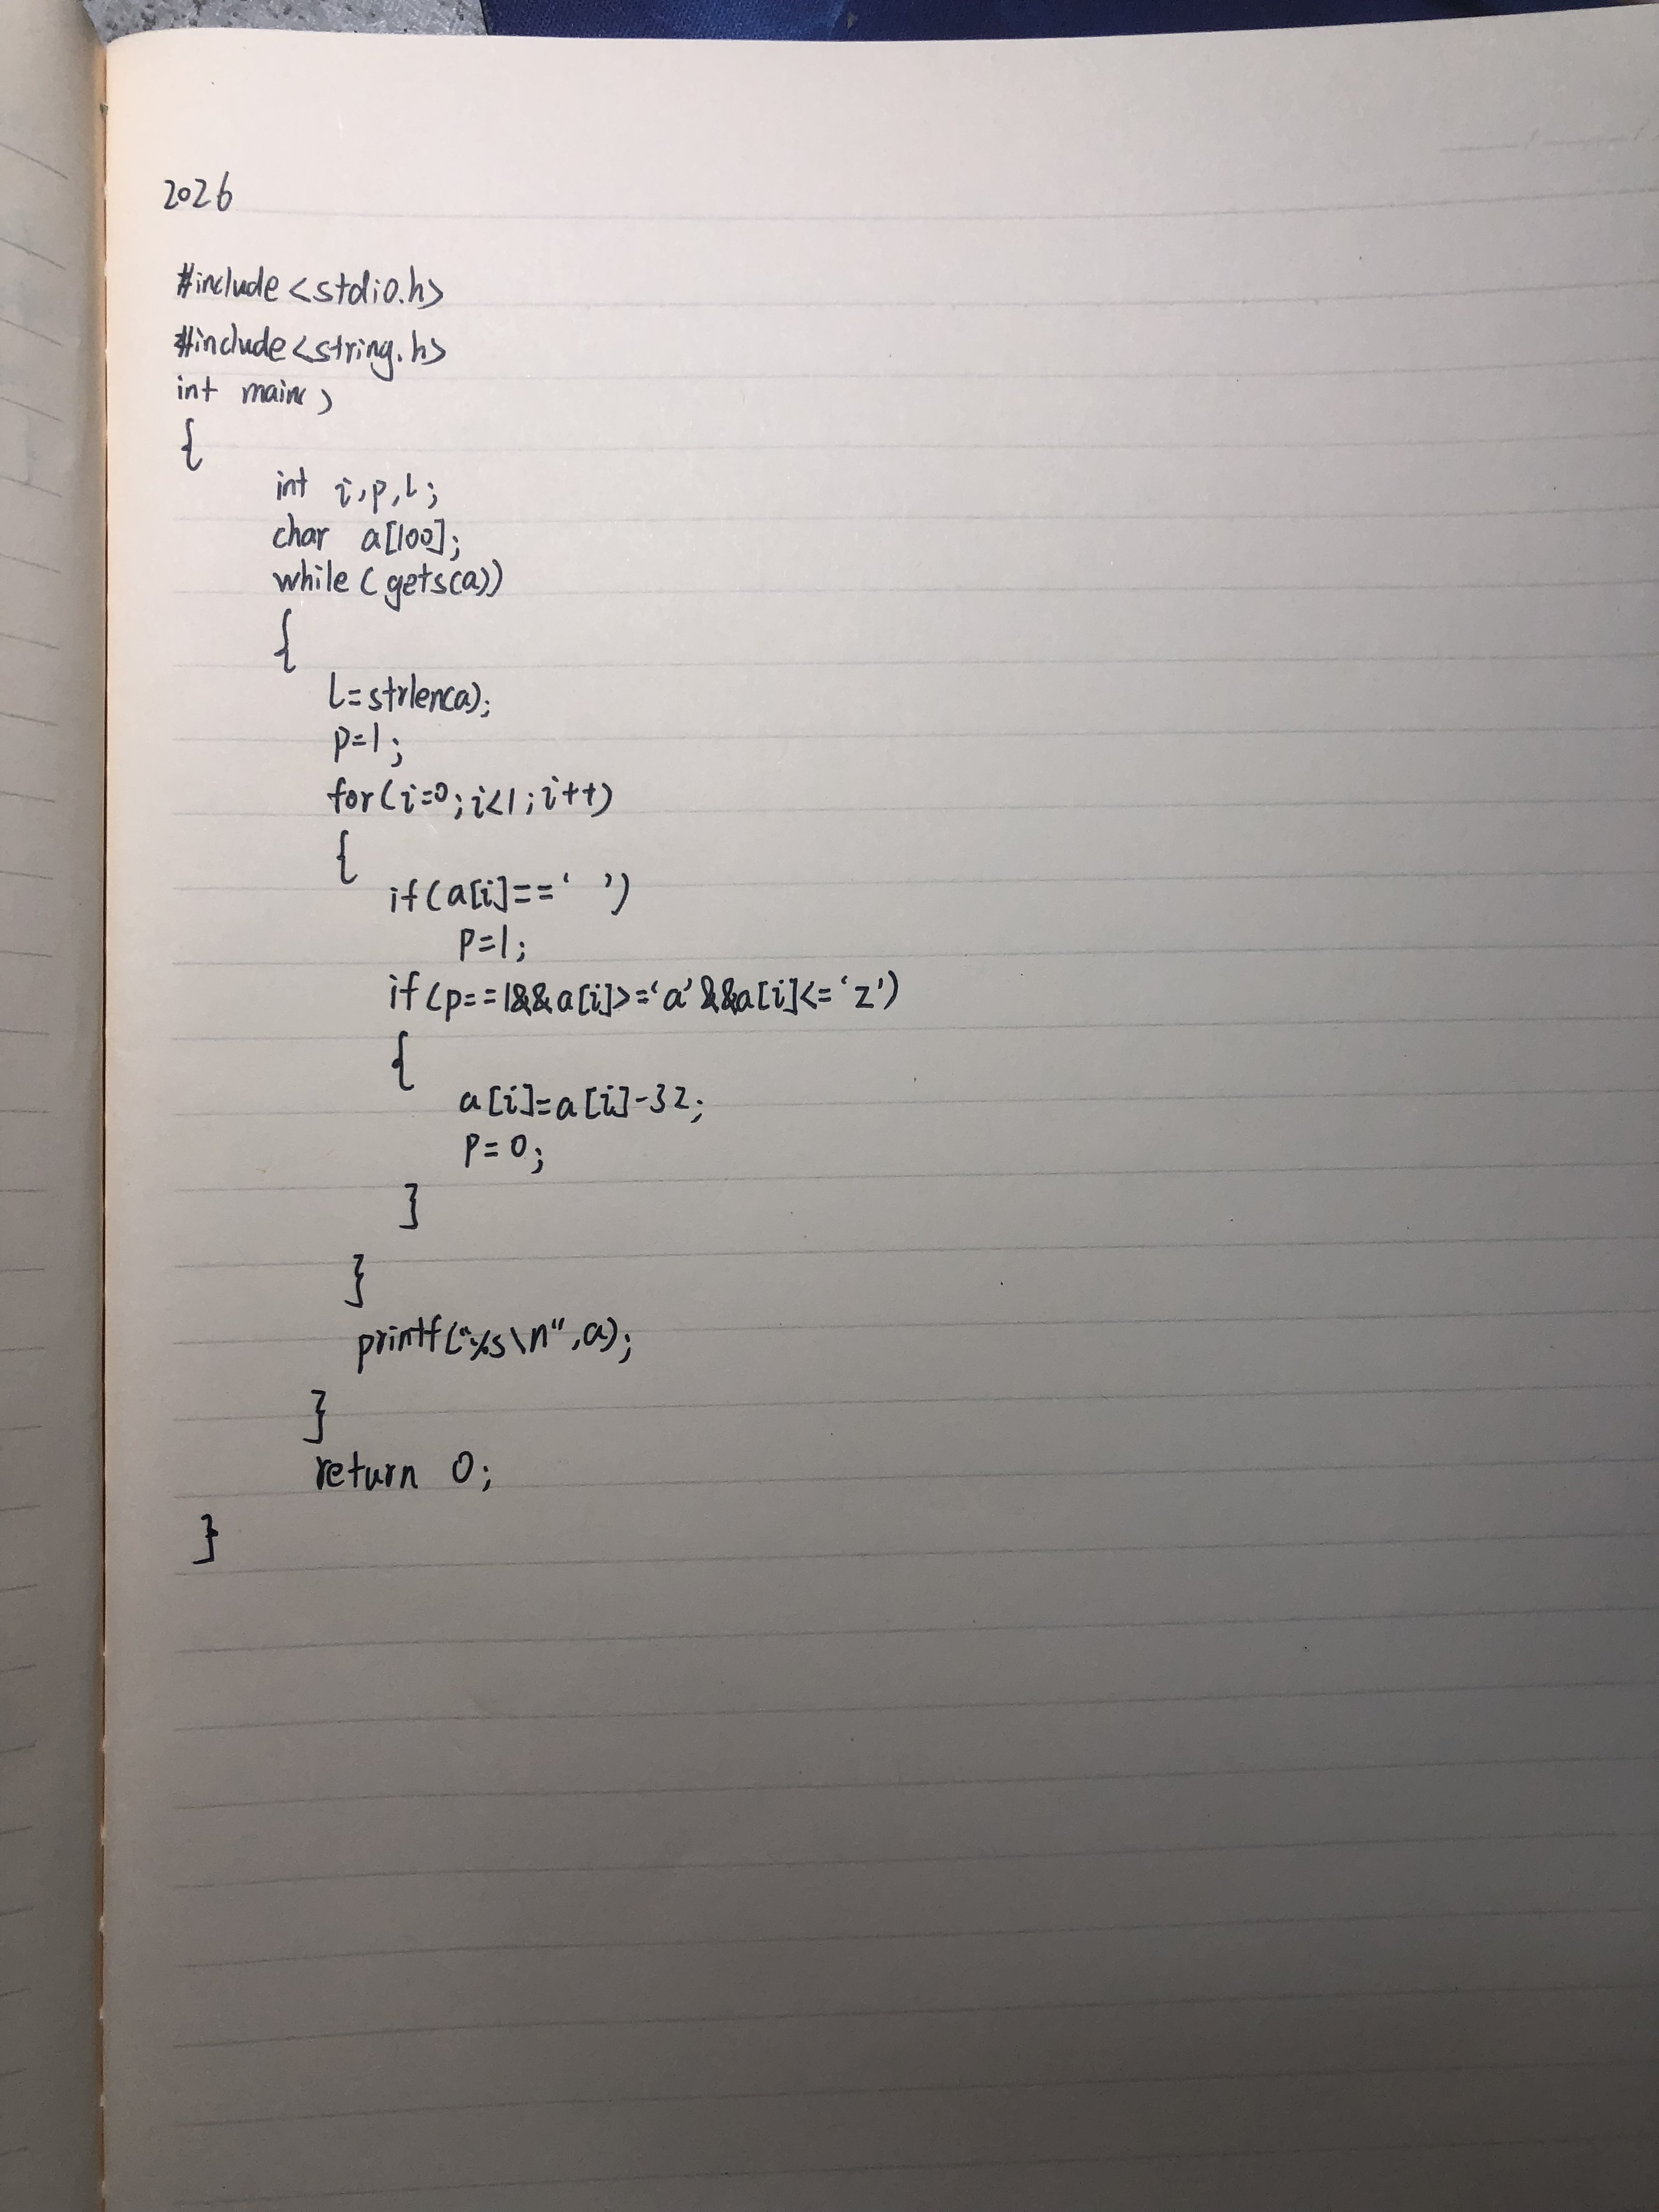 2026
#include<stdio.h>
#include<string.h>
int main()
{
int i,p,l;
char a[100];
while(gets(a))
{
l=strlen(a);
p=1;
for(i=0;i<l;i++)
{
if(a[i]==' ')
p=1;
if(p==1&&a[i]>='a'&&a[i]<='z')
{
a[i]=a[i]-32;
p=0;
}
}
printf("%s\n",a);
}
return 0;
}